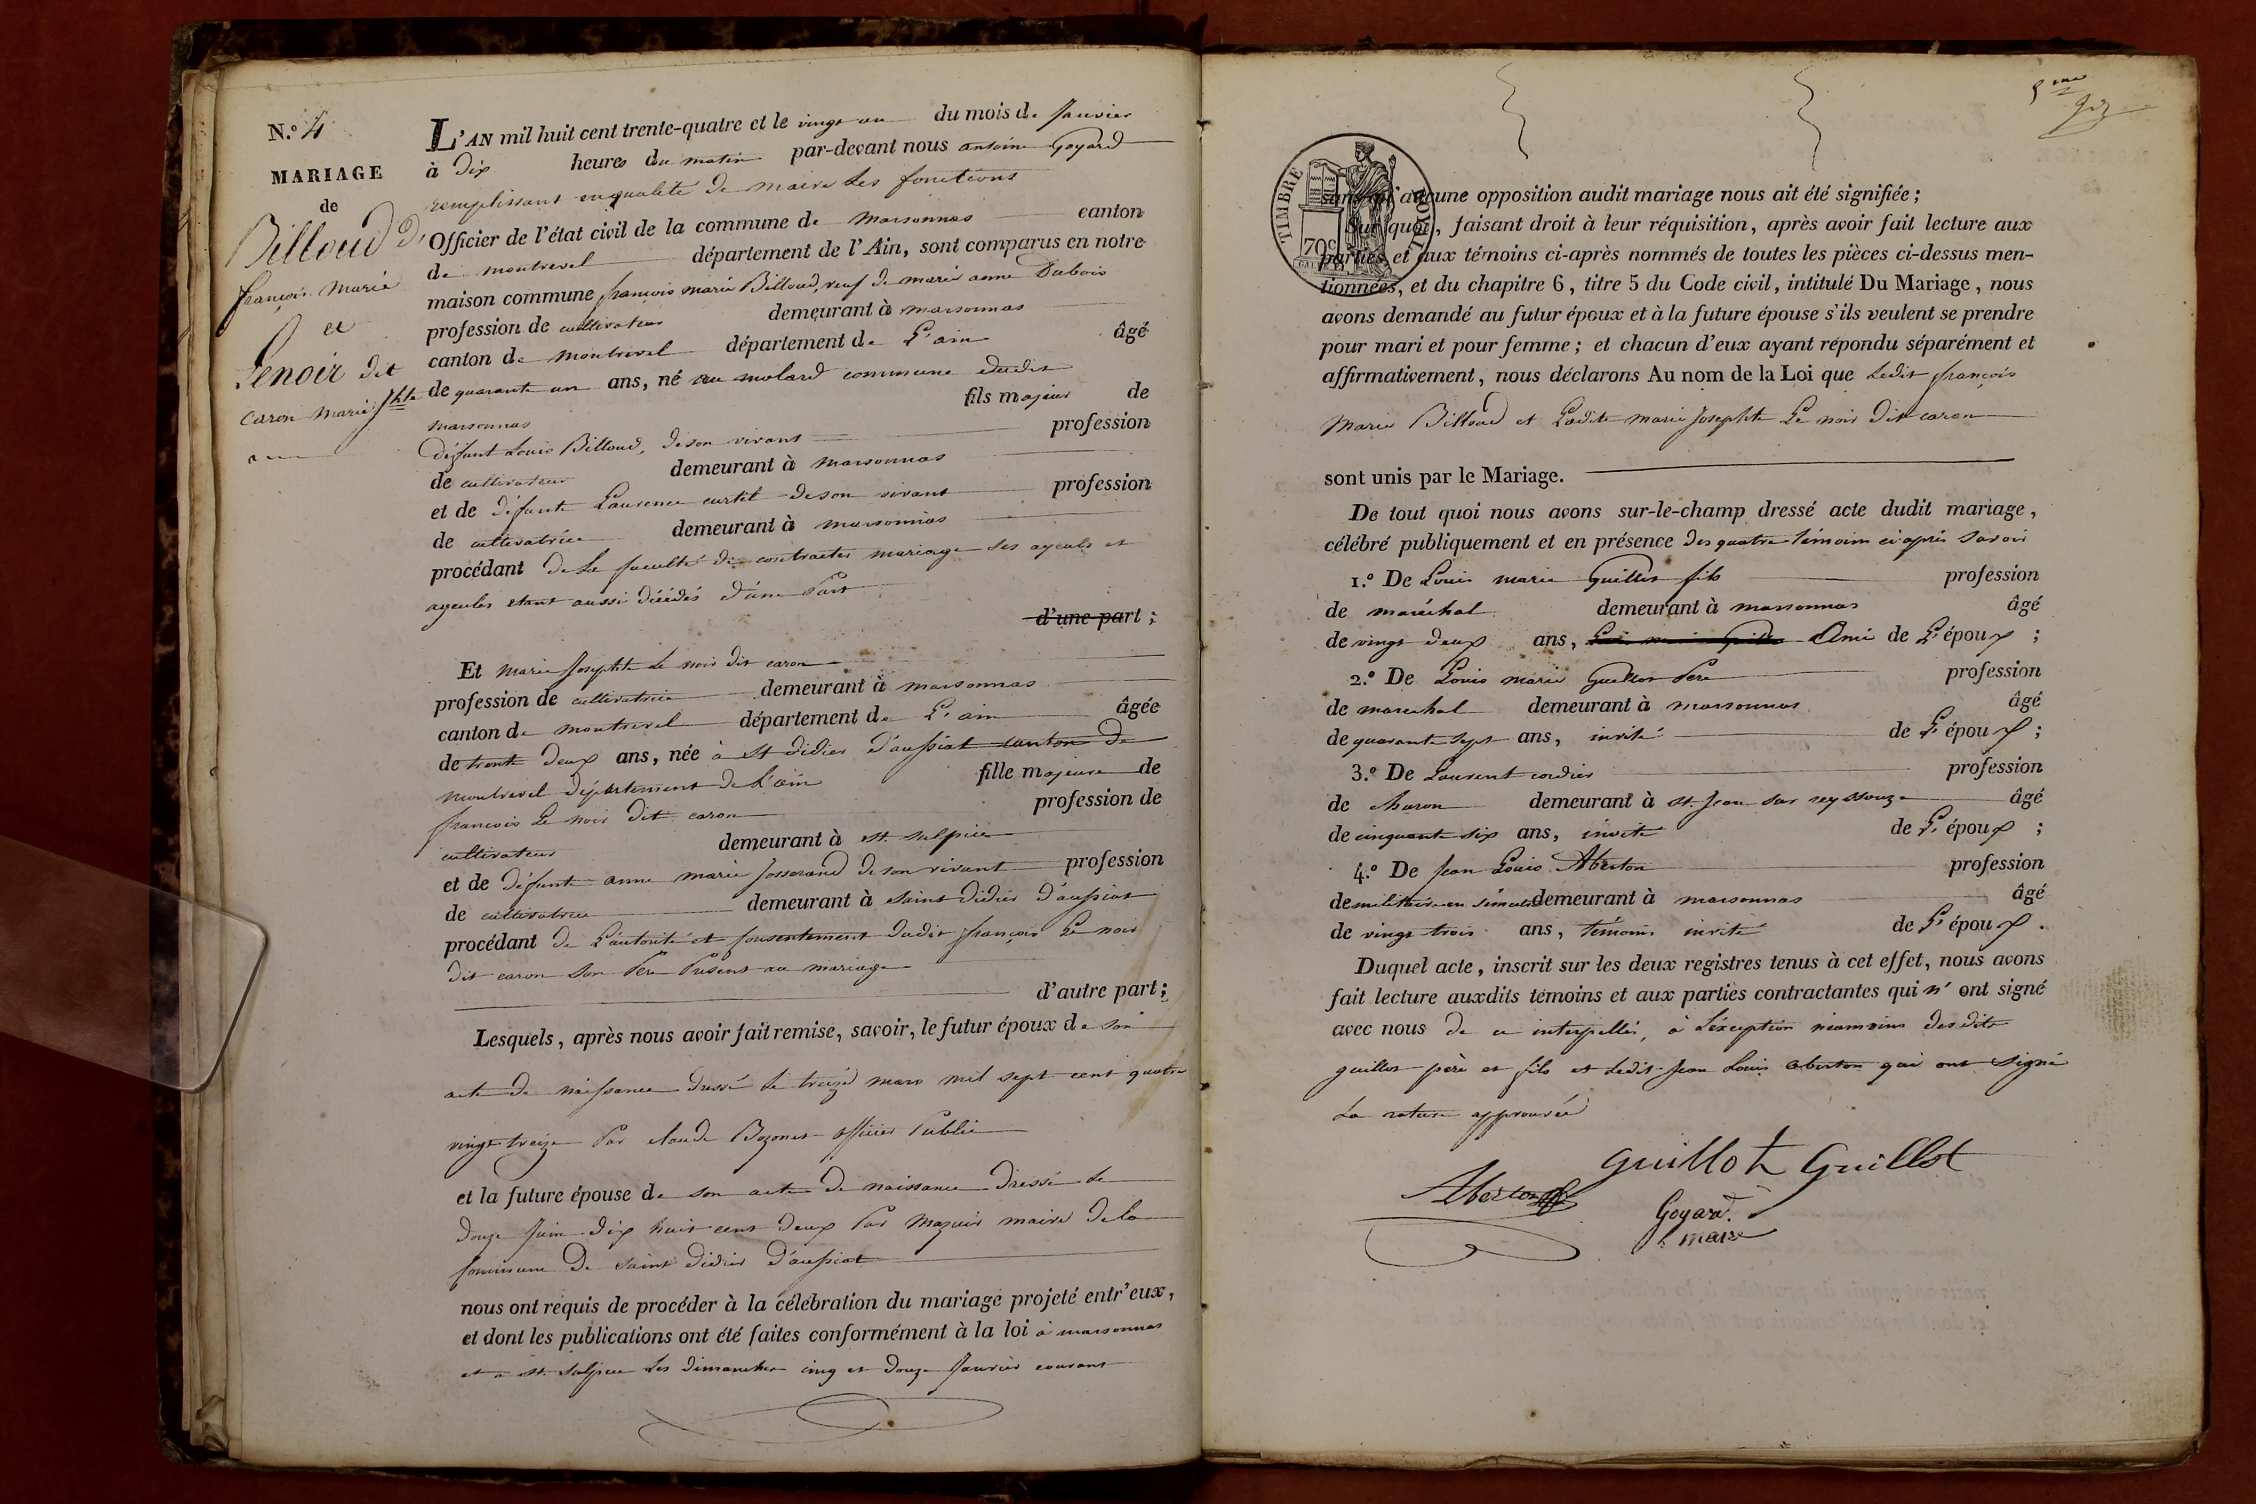 N.º 4
MARIAGE
de
Billoud
françois Marie
et
Lenoir dit
caron marie Jhte
L'AN mil huit cent trente-quatre et le vingt un du mois de Janvier
à dix heures du matin par-devant nous antoine Goyard
remplissant en qualité de maire les fonctions
Officier de l'état civil de la commune de marsonnas canton
de montrevel département de l'Ain, sont comparus en notre
maison commune françois marie Billoud, veuf de marie anne Dubois
profession de cultivateur demeurant à marsonnas
canton de montrevel département de L'ain âgé
de quarante un ans, né au molard commune dudit
marsonnas fils majeur de
défunt Louis Billoud, de son vivant profession
de cultivateur demeurant à marsonnas
et de défunte Laurence curtil de son vivant profession
de cultivatrice demeurant à marsonnas
procédant de la faculté de contracter mariage ses ayeuls et
ayeules etant aussi décédés d'une Part
d'une part ;
Et marie Josephte Le noir dit caron
profession de cultivatrice demeurant à marsonnas
canton de montrevel département de L'ain âgée
de trente deux ans, née à St didier d'aussiat canton de
montrevel département de L'ain fille majeure de
françois Le noir dit caron profession de
cultivateur demeurant à st. sulpice
et de défunte anne marie Josserand de son vivant profession
de cultivatrice demeurant à saint didier d'aussiat
procédant de L'autorité et consentement dudit françois Le noir
dit caron son Père Présent au mariage
d'autre part ;
Lesquels, après nous avoir fait remise, savoir, le futur époux de son
acte de naissance dressé le treize mars mil sept cent quatre
vingt treize Par claude Bozonet officier Public
et la future épouse de son acte de naissance dressé le
douze Juin dix huit cent deux Par Mazuir maire de la
commune de saint didier d'aussiat
nous ont requis de procéder à la célébration du mariage projeté entr'eux,
et dont les publications ont été faites conformément à la loi à marsonnas
et à st. sulpice les dimanches cinq et douze Janvier courant
5 me
TIMBRE ROYAL
70c
sans qu'aucune opposition audit mariage nous ait été signifiée ;
Sur quoi, faisant droit à leur réquisition, après avoir fait lecture aux
parties et aux témoins ci-après nommés de toutes les pièces ci-dessus men-
tionnées, et du chapitre 6, titre 5 du Code civil, intitulé Du Mariage, nous
avons demandé au futur époux et à la future épouse s'ils veulent se prendre
pour mari et pour femme ; et chacun d'eux ayant répondu séparément et
affirmativement, nous déclarons Au nom de la Loi que Ledit françois
Marie Billoud et Ladite marie Josephte Le noir dit caron
sont unis par le Mariage.
De tout quoi nous avons sur-le-champ dressé acte dudit mariage,
célébré publiquement et en présence des quatre témoins ci après savoir
1.º De Louis marie Guillot fils profession
de maréchal demeurant à marsonnas âgé
de vingt deux ans, Ami de L'époux ;
2.º De Louis marie Guillot Pere profession
de marechal demeurant à marsonnas âgé
de quarante sept ans, invité de L'époux ;
3.º De Laurent cordier profession
de charon demeurant à st. Jean sur reyssouze âgé
de cinquante six ans, invité de L'époux ;
4.º De Jean Louis Aberton profession
de militaire en demeurant à marsonnas âgé
de vingt trois ans, témoins invité de L'époux.
Duquel acte, inscrit sur les deux registres tenus à cet effet, nous avons
fait lecture auxdits témoins et aux parties contractantes qui n' ont signé
avec nous de ce interpellés, à L'éxception néamoins desdits
guillot père et fils et Ledit Jean Louis aberton qui ont signé
La rature approuvée
guillot Guillot
Aberton
Goyard.
maire